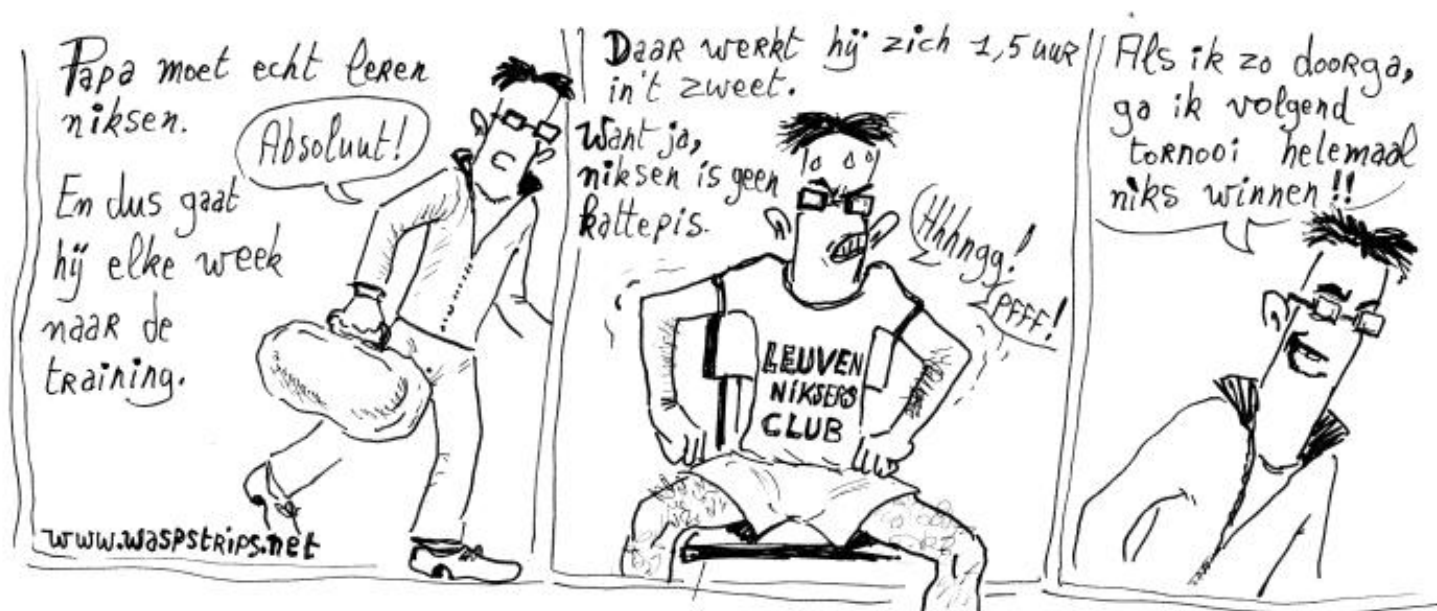 Papa moet echt leren
niksen.
Absoluut!
En dus gaat
hij elke week
naar de
training.
www.waspstrips.net
Daar werkt hij zich 1,5 uur
in't zweet.
Want ja,
niksen is geen
kattepis.
Hhhngg!
PFFF!
LEUVEN
NIKSERS
CLUB
Als ik zo doorga,
ga ik volgend
tornooi helemaal
niks winnen!!